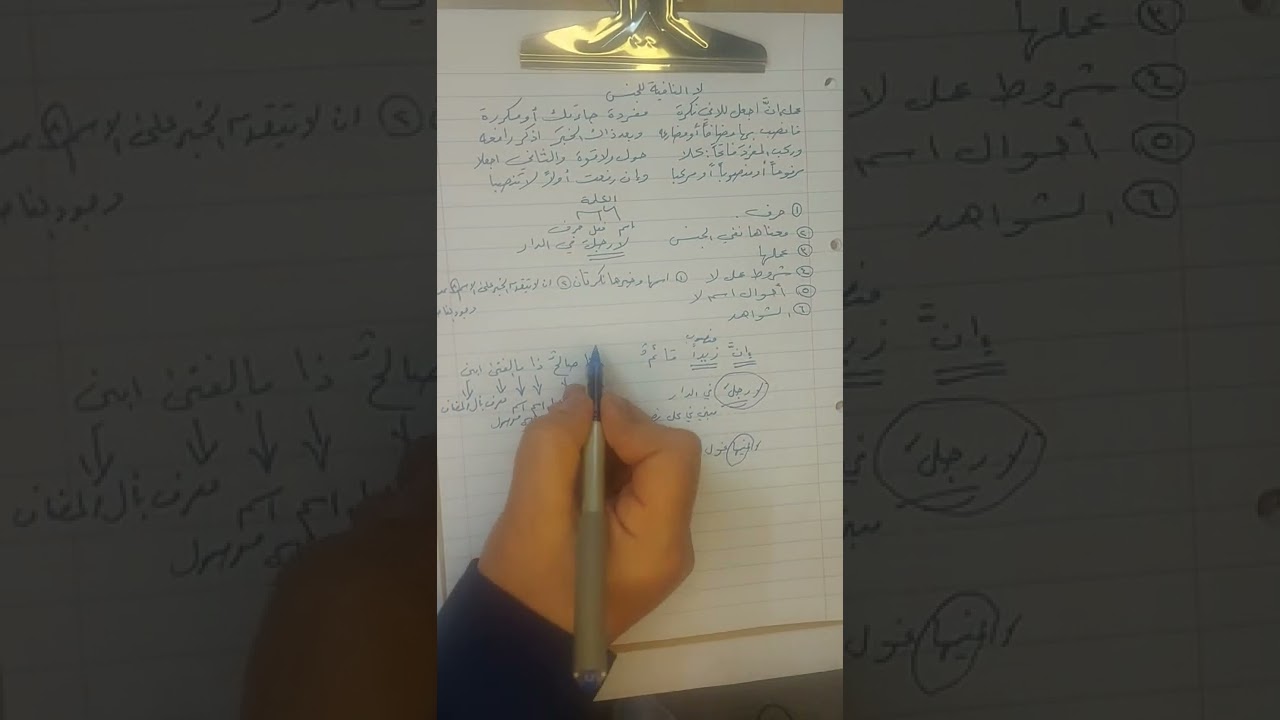 لا النافية للجنس
عمل إنَّ اجعل للا في نكرة مفردة جاءتك أو مكررة
فانصب بها مضافاً أو مضارعه وبعد ذاك الخبر اذكر رافعه
وركب المفرد فاتحاً: كلا حول ولا قوة والثاني اجعلا
مرفوعاً أو منصوباً أو مركبا وإن رفعت أولاً لا تنصبا
العلة
① حرف.
اسم فعل حرف
② معناها نفي الجنس
لا رجلَ في الدار
③ عملها
④ شروط عمل لا ① اسمها وخبرها نكرتان ② ان لا يتقدم الخبر على الاسم ③
⑤ أحوال اسم لا
⑥ الشواهد
منصوب
إنَّ زيداً قائمٌ
صالحٌ ذا ما الفتى ابني
لا رجلَ في الدار
اسم اسم معرف بأل المضاف
موصول
مبني في محل
لا فيها غول